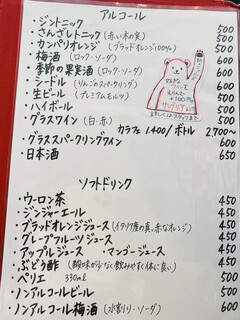 アルコール
・ジントニック 500
・さんざしトニック (赤い木の実) 500
・カンパリオレンジ (ブラッドオレンジ100%) 500
・梅酒 (ロック・ソーダ) 600
・季節の果実酒 (ロック・ソーダ)
・シードル (りんごのスパークリング)
・生ビール (プレミアムモルツ)
・ハイボール 500
・グラスワイン (白・赤) 500
カラフェ 1,400/ボトル 2,700〜
・グラススパークリングワイン 600
・日本酒 650
+100円
サングリア
ソフトドリンク
・ウーロン茶 450
・ジンジャーエール 450
・ブラッドオレンジジュース (イタリア産の真っ赤なオレンジ) 450
・グレープフルーツジュース 450
・アップルジュース ・マンゴージュース 450
・ぶどう酢 (酸味が少なく飲みやすく体に良い) 450
・ペリエ 330ml 500
・ノンアルコールビール 500
・ノンアルコール梅酒 (水割り・ソーダ) 600